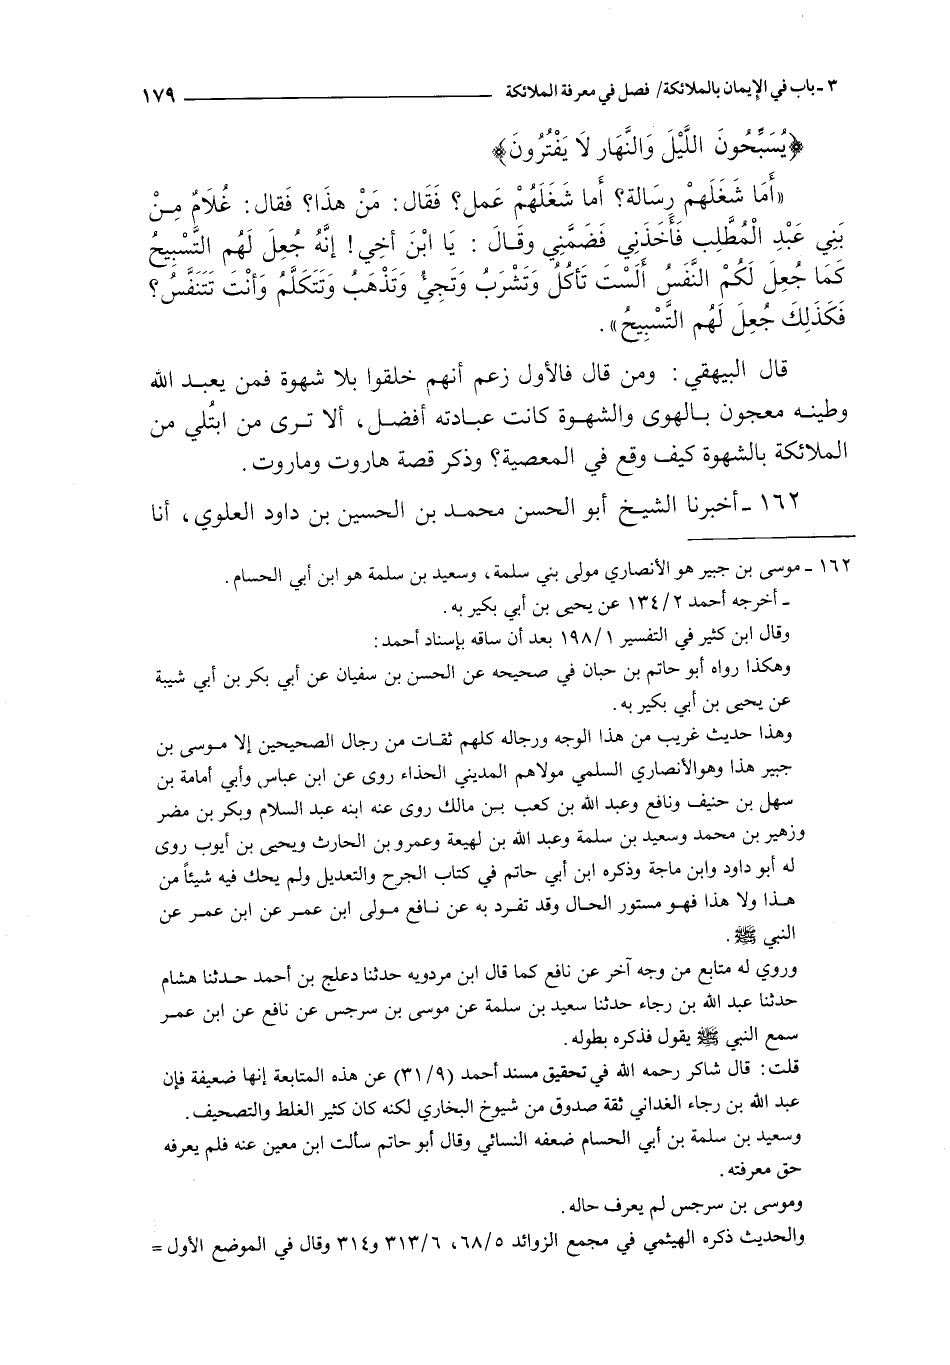 ٣ ـ باب في الإيمان بالملائكة/ فصل في معرفة الملائكة ١٧٩
﴿يُسَبِّحُونَ اللَّيْلَ وَالنَّهَار لَا يَفْتُرُونَ﴾
«أَمَا شَغَلَهمْ رِسَالة؟ أَما شَغَلَهُمْ عَمل؟ فَقَال: مَنْ هذَا؟ فَقال: غُلَامٌ مِـنْ
بَنِي عَبْدِ الْمُطَّلِب فَأَخَذَنِي فَضَمَّنِي وقَـالَ: يَا ابْنَ أخِي! إنَّهُ جُعِلَ لَهُم التَّسْبِيحُ
كَمَا جُعِلَ لَكُمْ النَّفَسُ أَلَسْتَ تَأكُلُ وَتَشْرَبُ وَتَجِئُ وَتَذْهَبُ وَتَتَكَلَّمُ وَأنْتَ تَتَنَفَّسُ؟
فَكَذَلِكَ جُعِلَ لَهُم التَّسْبِيحُ».
قال البيهقي: ومن قال فالأول زعم أنهم خلقوا بلا شهوة فمن يعبد الله
وطينه معجون بالهوى والشهوة كانت عبادته أفضل، ألا ترى من ابتُلي من
الملائكة بالشهوة كيف وقع في المعصية؟ وذكر قصة هاروت وماروت.
١٦٢ ـ أخبرنا الشيخ أبو الحسن محمد بن الحسين بن داود العلوي، أنا
١٦٢ ـ موسى بن جبير هو الأنصاري مولى بني سلمة، وسعيد بن سلمة هو ابن أبي الحسام.
ـ أخرجه أحمد ١٣٤/٢ عن يحيى بن أبي بكير به.
وقال ابن كثير في التفسير ١٩٨/١ بعد أن ساقه بإسناد أحمد:
وهكذا رواه أبو حاتم بن حبان في صحيحه عن الحسن بن سفيان عن أبي بكر بن أبي شيبة
عن يحيى بن أبي بكير به.
وهذا حديث غريب من هذا الوجه ورجاله كلهم ثقات من رجال الصحيحين إلا موسى بن
جبير هذا وهوالأنصاري السلمي مولاهم المديني الحذاء روى عن ابن عباس وأبي أمامة بن
سهل بن حنيف ونافع وعبد الله بن كعب بن مالك روى عنه ابنه عبد السلام وبكر بن مضر
وزهير بن محمد وسعيد بن سلمة وعبد الله بن لهيعة وعمرو بن الحارث ويحيى بن أيوب روى
له أبو داود وابن ماجة وذكره ابن أبي حاتم في كتاب الجرح والتعديل ولم يحك فيه شيئاً من
هذا ولا هذا فهو مستور الحال وقد تفرد به عن نافع مولى ابن عمر عن ابن عمر عن
النبي ﷺ.
وروي له متابع من وجه آخر عن نافع كما قال ابن مردويه حدثنا دعلج بن أحمد حدثنا هشام
حدثنا عبد الله بن رجاء حدثنا سعيد بن سلمة عن موسى بن سرجس عن نافع عن ابن عمر
سمع النبي ﷺ يقول فذكره بطوله.
قلت: قال شاكر رحمه الله في تحقيق مسند أحمد (٣١/٩) عن هذه المتابعة إنها ضعيفة فإن
عبد الله بن رجاء الغداني ثقة صدوق من شيوخ البخاري لكنه كان كثير الغلط والتصحيف.
وسعيد بن سلمة بن أبي الحسام ضعفه النسائي وقال أبو حاتم سألت ابن معين عنه فلم يعرفه
حق معرفته.
وموسى بن سرجس لم يعرف حاله.
والحديث ذكره الهيثمي في مجمع الزوائد ٦٨/٥، ٣١٣/٦ و٣١٤ وقال في الموضع الأول =